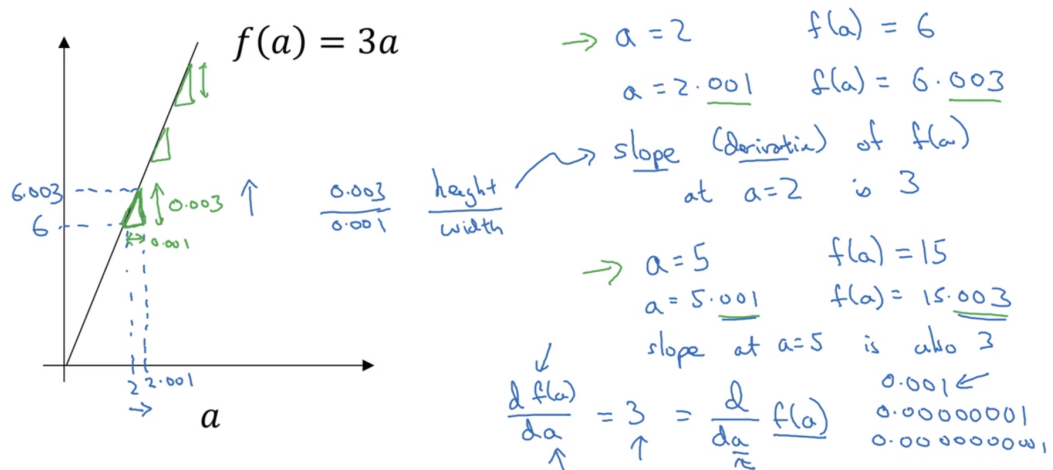 f(a) = 3a
6.003
6
0.003
0.001
2
2.001
a
0.003
0.001
height
width
a = 2
f(a) = 6
a = 2.001
f(a) = 6.003
slope (derivative) of f(a)
at a=2 is 3
a = 5
f(a) = 15
a = 5.001
f(a) = 15.003
slope at a=5 is also 3
d f(a)
da
= 3 =
d
da
f(a)
0.001
0.00000001
0.0000000001